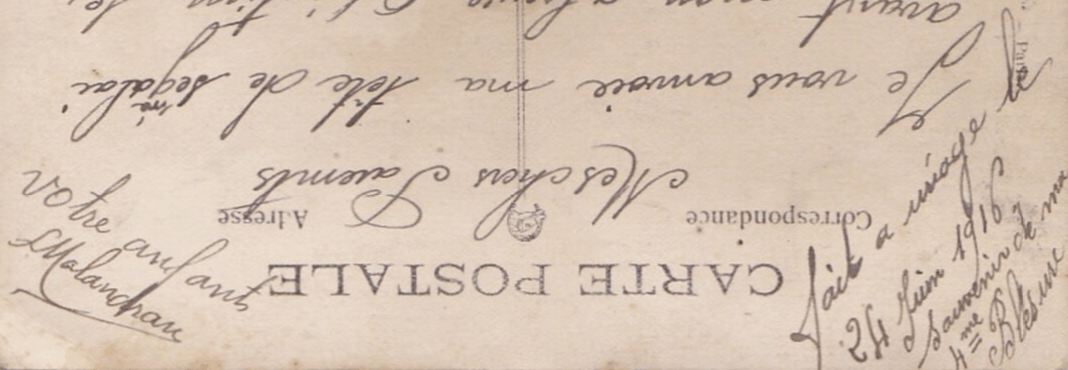 CARTE POSTALE
Correspondance
Adresse
Mes chers Parents
Je vous anvoie ma tête de
avant mon
fait a
24 Juin 1916
Souvenir de ma
4me Blesure
votre anfant